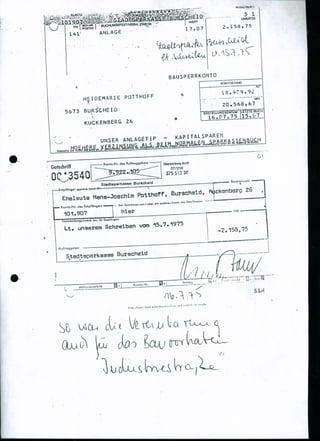 STADTSPARKASSE BURSCHEID
101907
141 ANLAGE 17.07 2.158,75
Stadtsparkasse Burscheid
15.7.75
BAUSPERRKONTO
HEIDEMARIE POTTHOFF
5673 BURSCHEID
KUCKENBERG 26
18.409,92
20.568,67
16.07.75 15.07
UNSER ANLAGETIP - KAPITALSPAREN
HOEHERE VERZINSUNG ALS BEIM NORMALEN SPARKASSENBUCH
Gutschrift
9.922.105
375 513 30
Stadtsparkasse Burscheid
Eheleute Hans-Joachim Potthoff, Burscheid, Kuckenberg 26
101.907 hier
Lt. unserem Schreiben vom 15.7.1975 -2.158,75
Stadtsparkasse Burscheid
16.7.75
So war die Vereinbarung
auch für das Bauvorhaben
"Industriestraße"